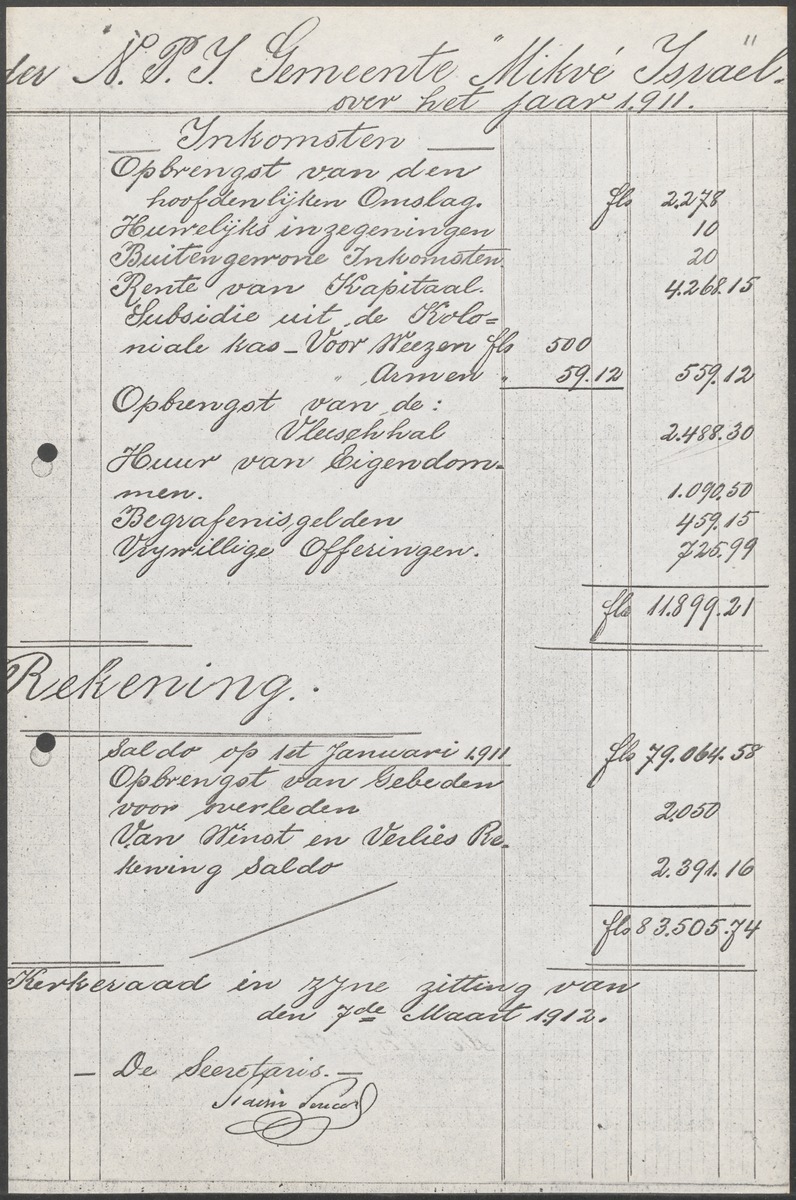 der N. P. I. Gemeente "Mikvé Israël".
over het jaar 1911.
Inkomsten
Opbrengst van den
hoofdenlijken Omslag. fls 2.278
Huwelijks inzegeningen 10
Buitengewone Inkomsten 20
Rente van Kapitaal. 4.268.15
Subsidie uit de Kolo=
niale kas - Voor Weezen fls 500
" Armen " 59.12 559.12
Opbrengst van de:
Vleeschhal 2.488.30
Huur van Eigendom-
men. 1.090.50
Begrafenisgelden 459.15
Vrywillige Offeringen. 725.99
fls 11.899.21
Rekening.
Saldo op 1st Januari 1911 fls 79.064.58
Opbrengst van Gebeden
voor overleden 2.050
Van Winst en Verlies Re-
kening Saldo 2.391.16
fls 83.505.74
Kerkeraad in zyne zitting van
den 7de Maart 1912.
- De Secretaris. -